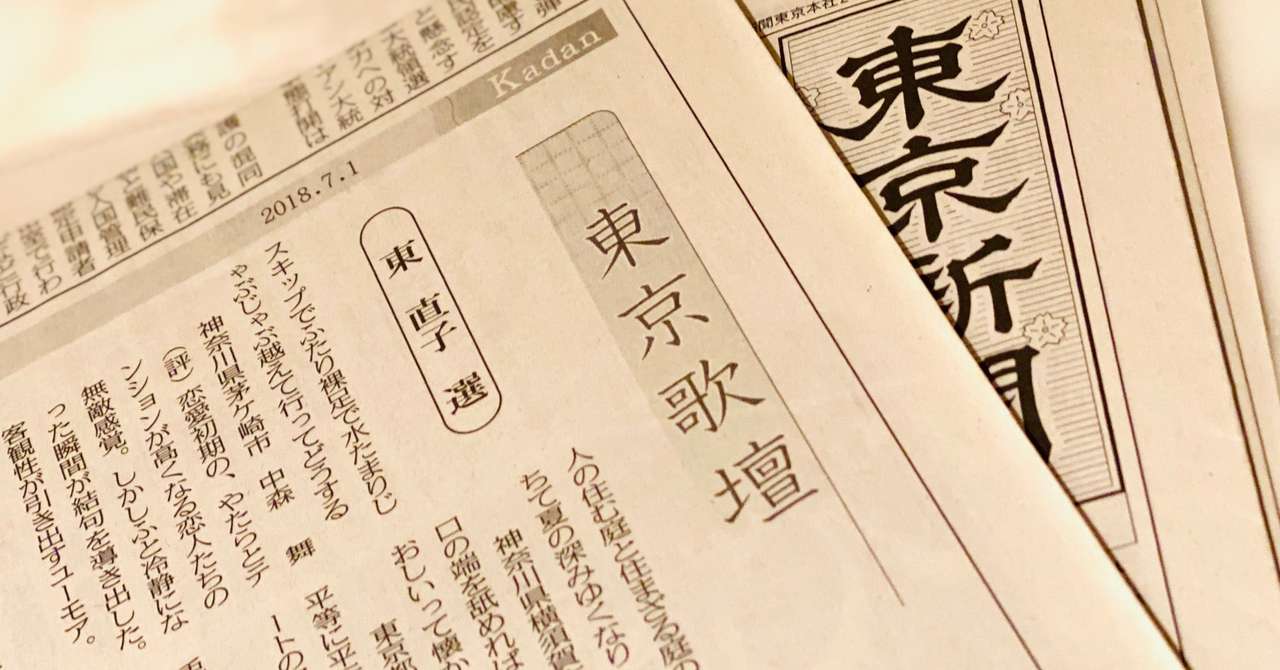 東京新聞
Kadan
2018.7.1
東京歌壇
東 直子 選
スキップでふたり裸足で水たまりじ
ゃぶじゃぶ越えて行ってどうする
神奈川県茅ケ崎市 中森 舞
(評)恋愛初期の、やたらとテ
ンションが高くなる恋人たちの
無敵感覚。しかしふと冷静にな
った瞬間が結句を導き出した。
客観性が引き出すユーモア。
人の住む庭と住まざる庭の
ちて夏の深みゆくなり
神奈川県横須賀
口の端を舐めれば
おしいって懐か
東京都
平等に平
ートの
と懸念す
大統領選
力への対
アン大統
護の面同
務にも見
国や滞在
と難民保
入国管理
定申請者